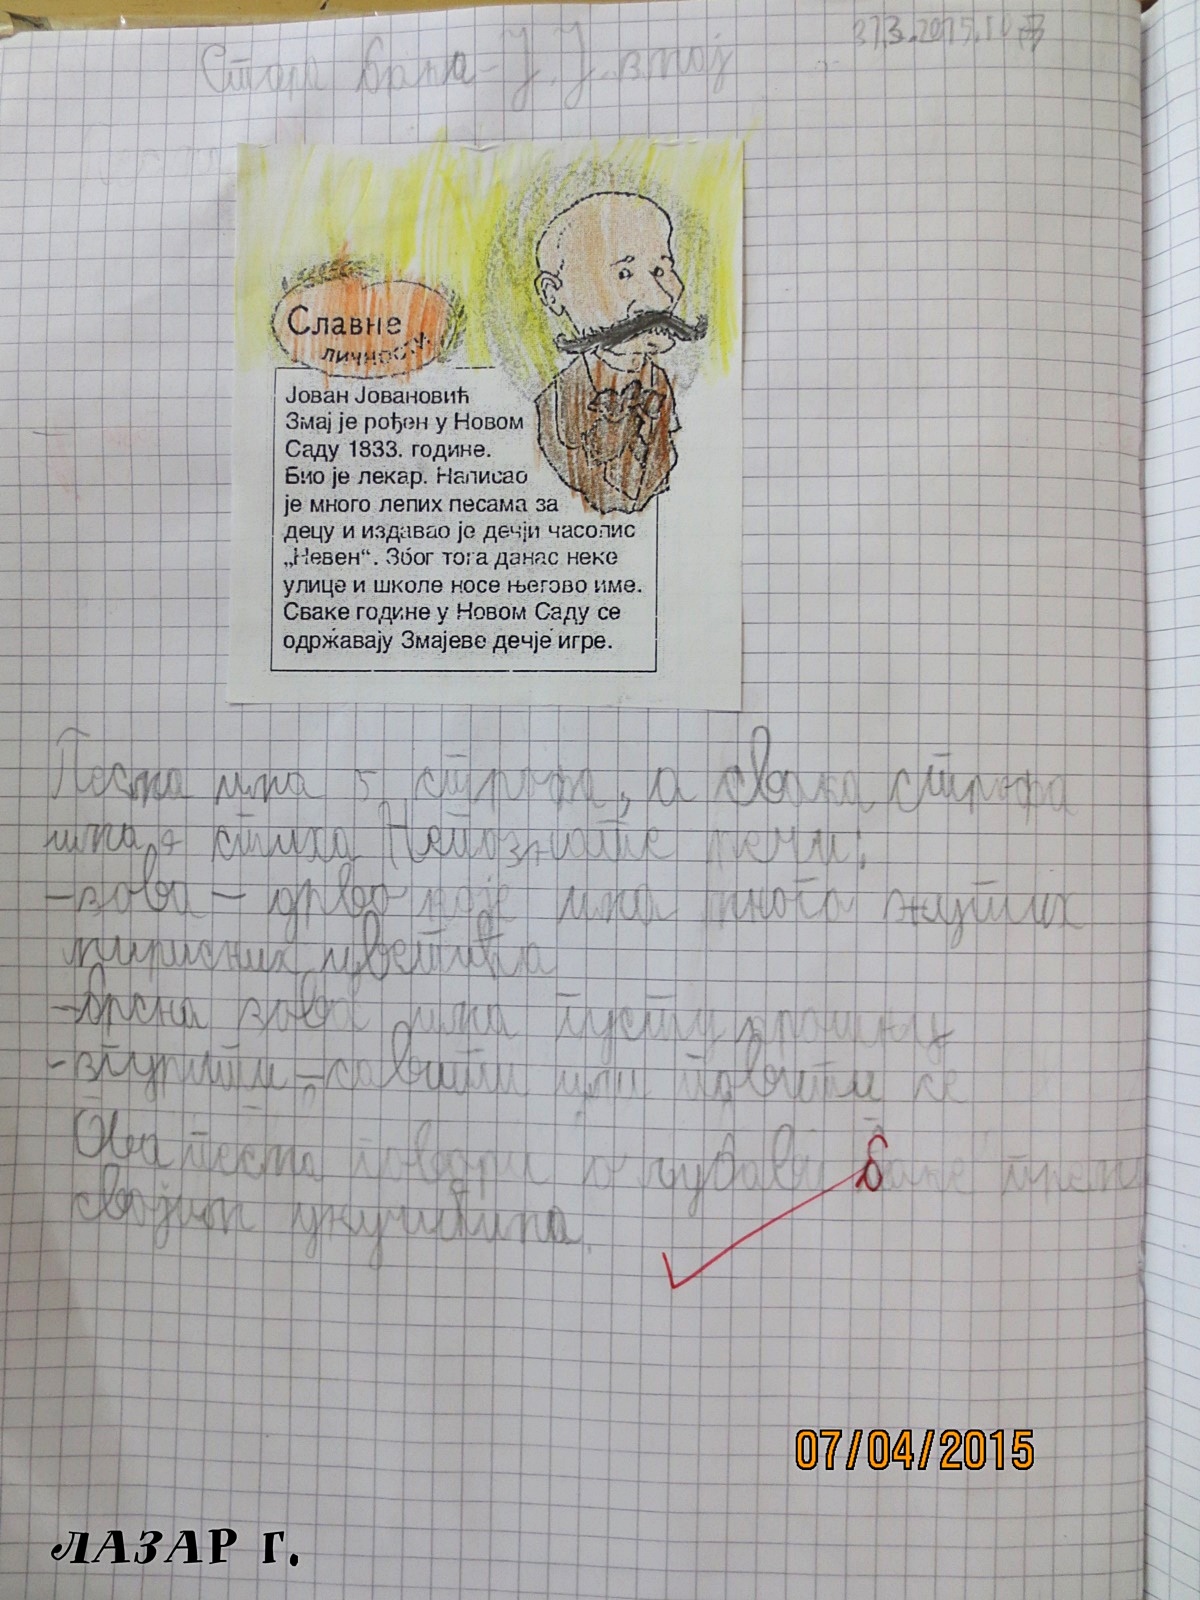 31.3.2015.
Стара бака - Ј. Ј. Змај
Славне
личности
Јован Јовановић
Змај је рођен у Новом
Саду 1833. године.
Био је лекар. Написао
је много лепих песама за
децу и издавао је дечји часопис
„Невен“. Због тога данас неке
улице и школе носе његово име.
Сваке године у Новом Саду се
одржавају Змајеве дечје игре.
Песма има 5 строфа, а свака строфа
има 4 стиха Непознате речи:
- зова - дрво које има много жутих
мирисних цветића
- брсна зова има густу крошњу
- згурити - савити или повити се
Ова песма говори о љубави баке према
својим укућанима.
07/04/2015
ЛАЗАР Г.